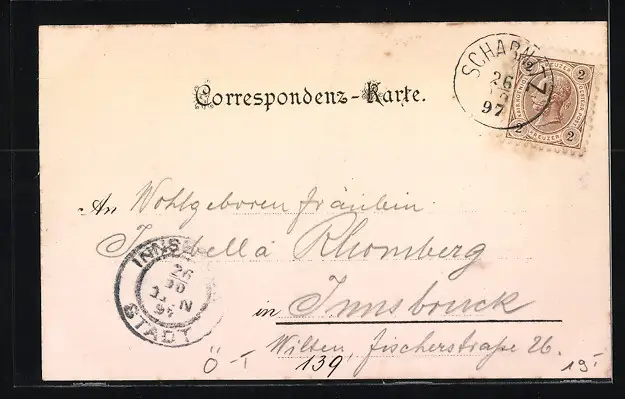 Correspondenz-Karte.
SCHARNITZ
26
97
2 KREUZER 2
2 KREUZER 2
An Wohlgeboren Fräulein
Isabella Rhomberg
in Innsbruck
Wilten, Fischerstraße 26.
INNSBRUCK
26
10
97
STADT
Ö-T
139
19.-